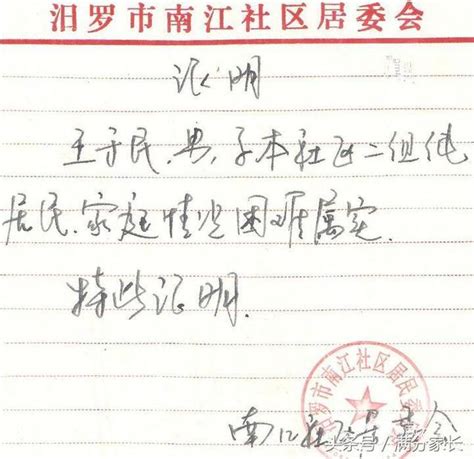 汨罗市南江社区居委会
证明
王于民,男,子本社区二组纯
居民.家庭情况困难属实.
特此证明.
汨罗市南江社区居民委
南江社区居委会
头条号/满分家长